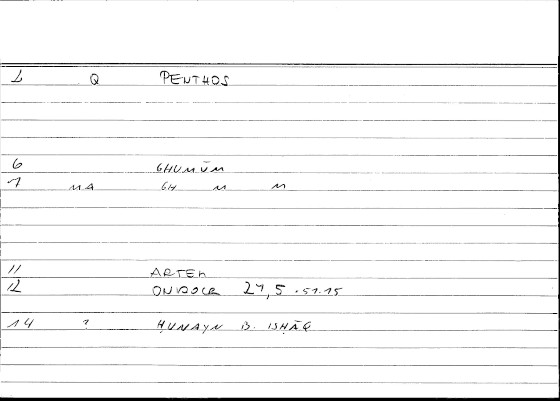 1 Q PENTHOS
6 GHUMŪM
7 MA GH M M
11 ARTEM
12 27,5 .51.15
14 ? ḤUNAYN B. ISḤĀQ